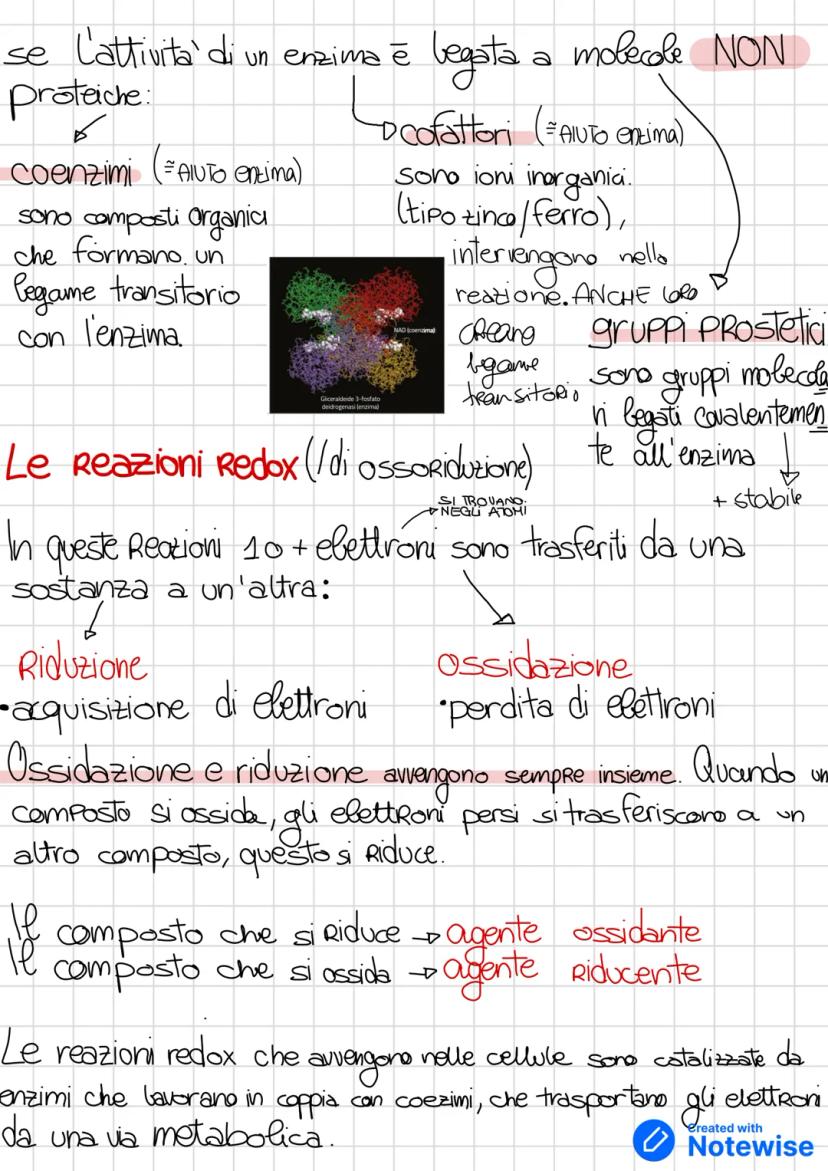 se l'attività di un enzima è legata a molecole NON
proteiche:
coenzimi (≅ AIUTO enzima)
sono composti organici
che formano un
legame transitorio
con l'enzima.
cofattori (≅ AIUTO enzima)
sono ioni inorganici.
(tipo zinco/ferro),
intervengono nella
reazione. ANCHE loro
creano
legame
transitorio
NAD (coenzima)
Gliceraldeide 3-fosfato
deidrogenasi (enzima)
gruppi PROSTetici
sono gruppi molecola
ri legati covalentemen
te all'enzima
+ stabile
Le Reazioni Redox (/di ossoriduzione)
SI TROVANO
NEGLI ATOMI
In queste Reazioni 1 o + elettroni sono trasferiti da una
sostanza a un'altra:
Riduzione
•acquisizione di elettroni
Ossidazione
•perdita di elettroni
Ossidazione e riduzione avvengono sempre insieme. Quando un
composto si ossida, gli elettroni persi si trasferiscono a un
altro composto, questo si Riduce.
Il composto che si Riduce → agente ossidante
Il composto che si ossida → agente Riducente
Le reazioni redox che avvengono nelle cellule sono catalizzate da
enzimi che lavorano in coppia con coezimi, che trasportano gli elettroni
da una via metabolica.
Created with
Notewise